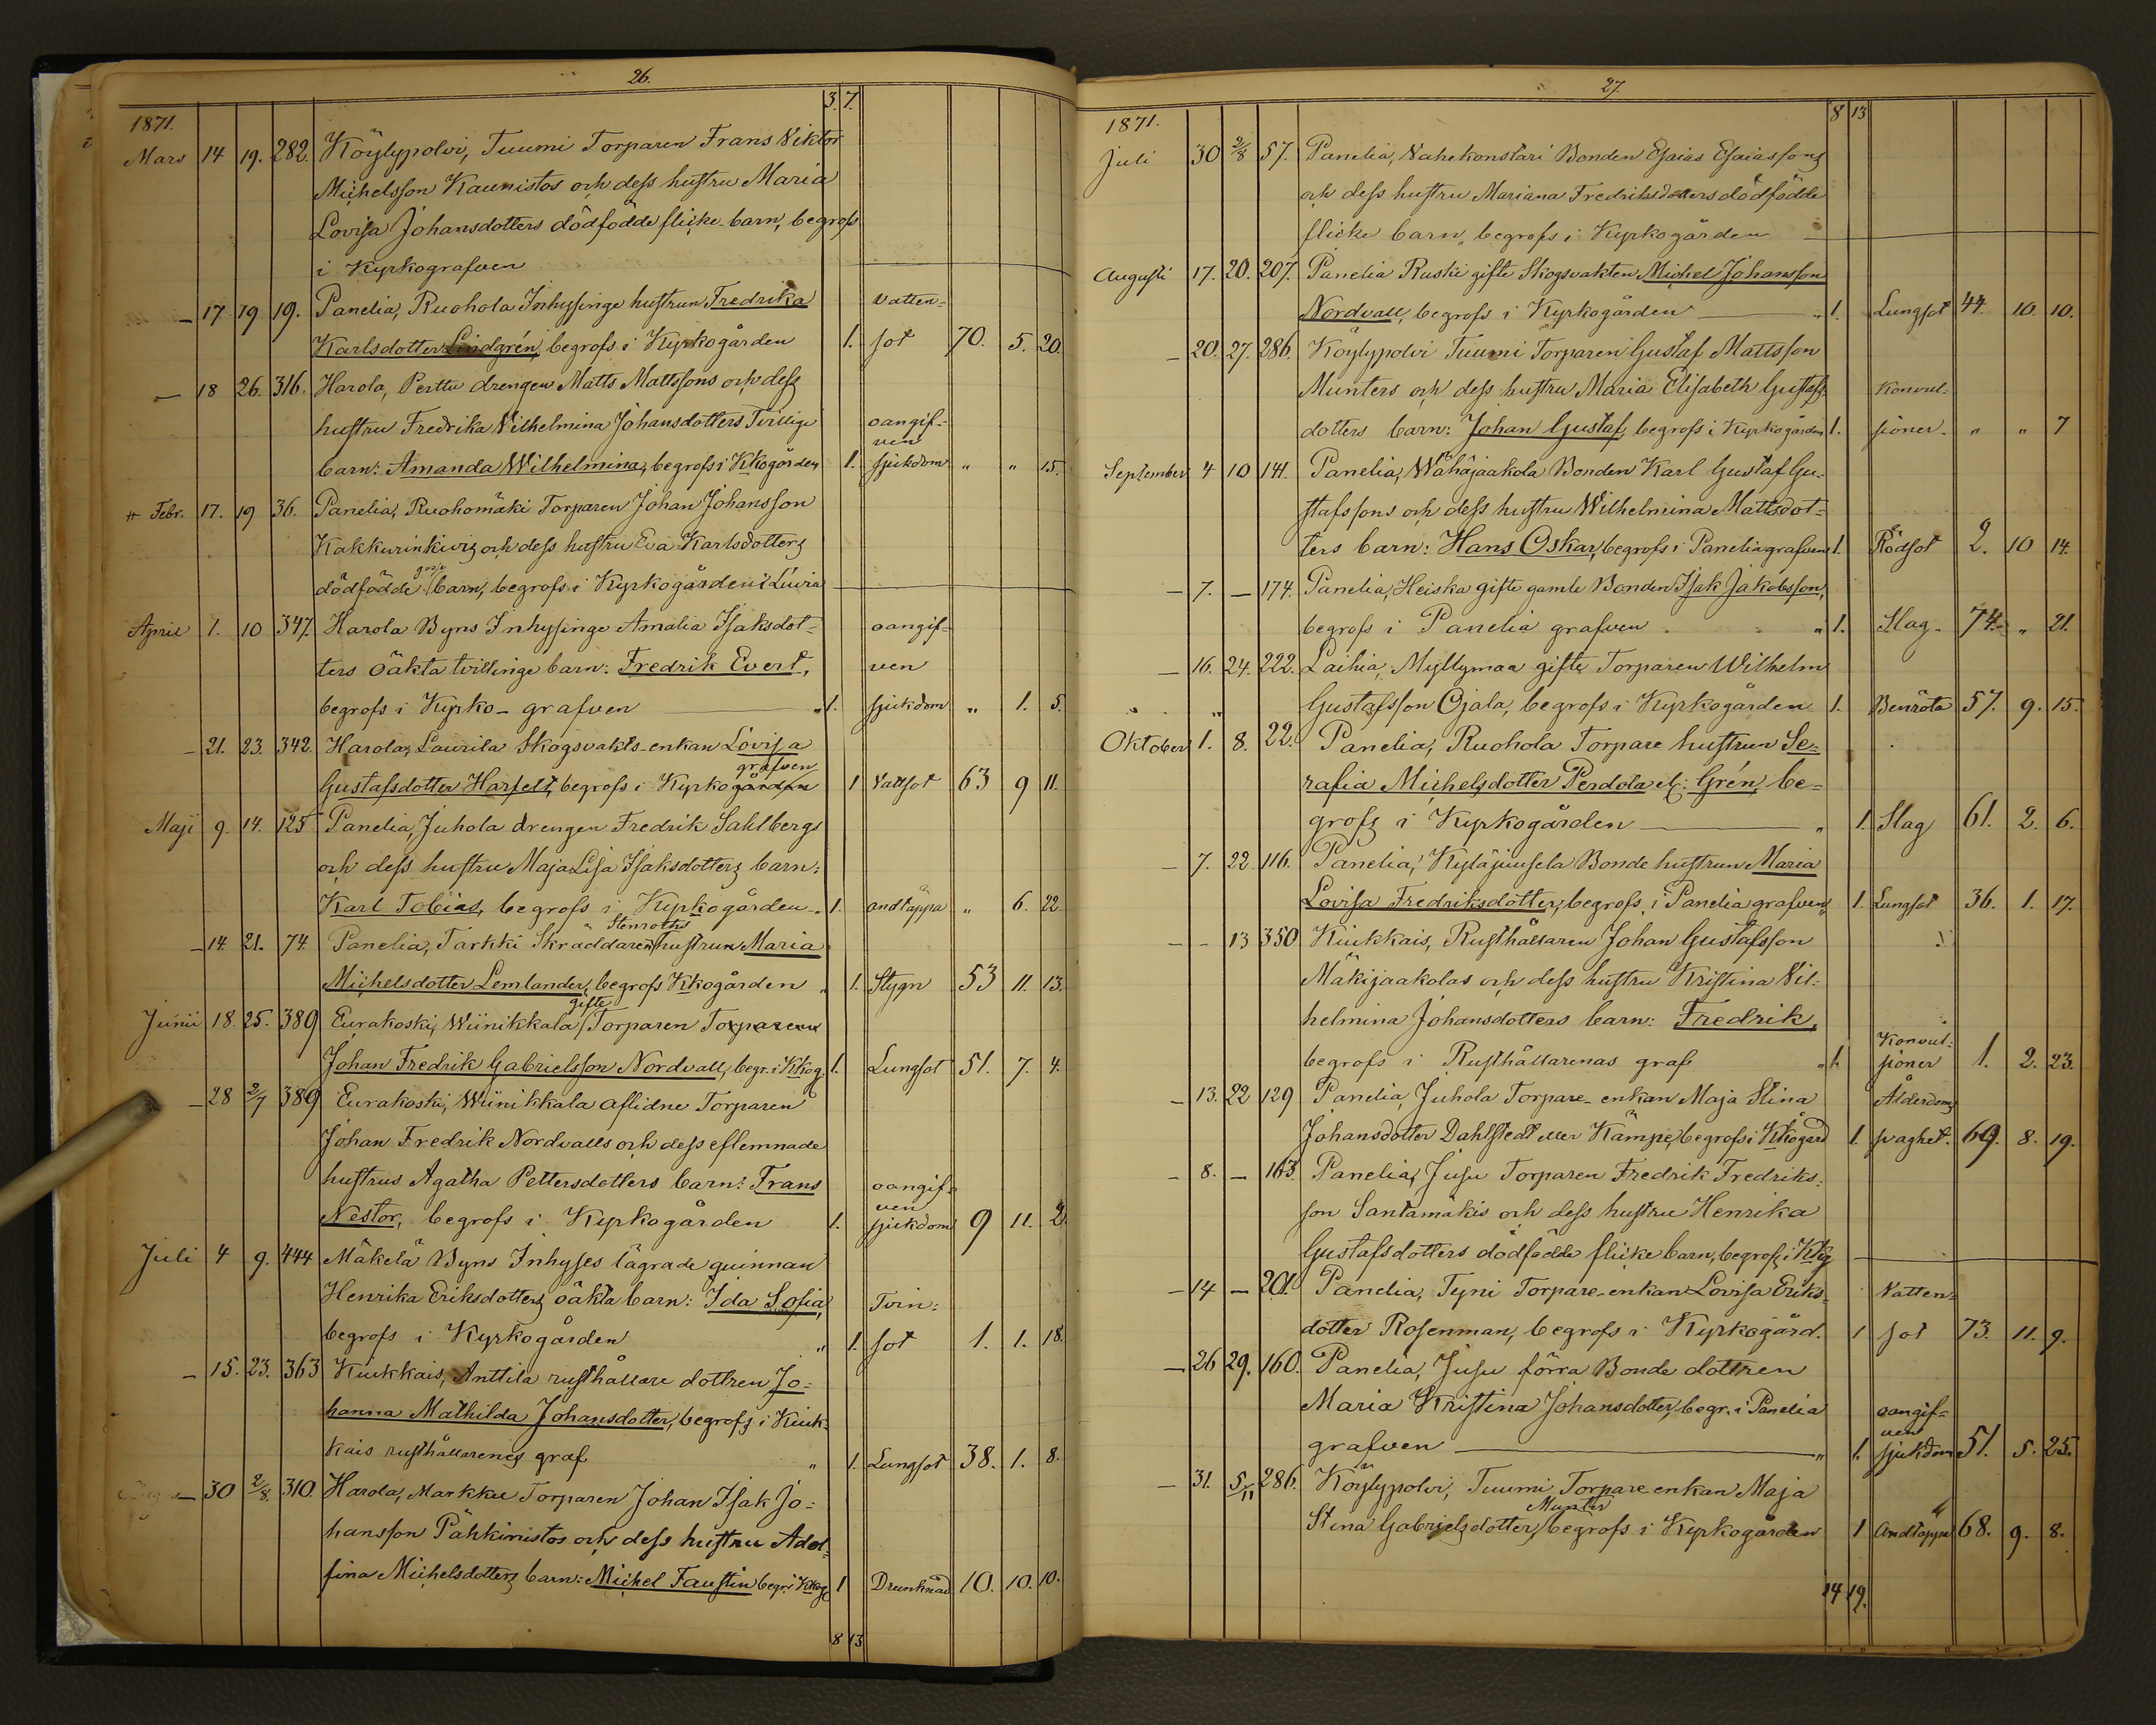 26.
3. 7.
1871.
Mars 14 19. 282. Köylypolvi, Tuumi Torparen Frans Viktor
Michelsson Kaunistos och dess hustru Maria
Lovisa Johansdotters dödfödde flicke-barn, begrofs
i Kyrkografven
— 17 19 19. Panelia, Ruohola Inhysinge hustrun Fredrika vatten-
Karlsdotter Lindgrén, begrofs i Kyrkogården 1. sot 70. 5. 20.
— 18 26. 316. Harola, Perttu drengen Matts Mattssons och dess
hustru Fredrika Vilhelmina Johansdotters Tvillige oangif-
ven
barn: Amanda Wilhelmina, begrofs i Kkogården 1. sjukdom " " 15.
Febr. 17. 19 36. Panelia, Ruohomäki Torparen Johan Johansson
Kakkurinkivis och dess hustru Eva Karlsdotters
dödfödde goss barn, begrofs i Kyrkogården i Luvia
April 1. 10 347. Harola Byns Inhysinge Amalia Isaksdot- oangif-
ters oäkta tvillinge barn: Fredrik Evert, ven
begrofs i Kyrko-grafven " 1. sjukdom " 1. 5.
— 21. 23. 342. Harola, Laurila Skogsvakts-enkan Lovisa
grafven
Gustafsdotter Harfelt, begrofs i Kyrkogården 1 Vattsot 63 9 11.
Maji 9. 14. 125 Panelia, Juhola drengen Fredrik Sahlbergs
och dess hustru Maja Lisa Isaksdotters barn:
Karl Tobias, begrofs i Kyrkogården " 1. andtäppa " 6. 22.
Stenroths
— 14. 21. 74. Panelia, Tarkki Skräddaren hustrun Maria
Michelsdotter Lemlander, begrofs Kkogården " 1. Stygn 53 11. 13.
gifte
Junii 18. 25. 389 Eurakoski, Wiinikkala Torparen Torparen
Johan Fredrik Gabrielsson Nordvall, begr. i Kkog. 1. Lungsot 51. 7. 4.
— 28 2/7 389 Eurakoski, Wiinikkala aflidne Torparen
Johan Fredrik Nordvalls och dess eflemnade
hustrus Agatha Pettersdotters barn: Frans oangif-
ven
Nestor, begrofs i Kyrkogården 1. sjukdom 9 11. 2.
Juli 4 9. 444 Mäkelä Byns Inhyses lägrade quinnan
Henrika Eriksdotters oäkta barn: Ida Sofia, Tvin-
begrofs i Kyrkogården " 1. sot 1. 1. 18.
— 15. 23. 363 Kiukkais, Anttila rusthållare dottren Jo-
hanna Mathilda Johansdotter, begrofs i Kiuk-
kais rusthållarenes graf " 1. Lungsot 38. 1. 8.
— 30 2/8. 310. Harola, Markku Torparen Johan Isak Jo-
hansson Pähkimistos och dess hustru Adol-
fina Michelsdotters barn: Michel Faustin begr. i Kkog. 1 Drunknad 10. 10. 10.
8 13
27.
8 13
1871.
Juli 30 2/8 57. Panelia, Vahekonstari Bonden Esaias Esaiassons
och dess hustru Mariana Fredriksdotters dödfödde
flicke barn, begrofs i Kyrkogården
Augusti 17. 20. 207. Panelia Ruski gifte Skogsvakten Michel Johansson
Nordvall, begrofs i Kyrkogården " 1. Lungsot 44. 10. 10.
— 20. 27. 286. Köylypolvi Tuumi Torparen Gustaf Mattsson
Munters och dess hustru Maria Elisabeth Gustafs- Konvul-
dotters barn: Johan Gustaf, begrofs i Kyrkogården 1. sioner. " " 7
September 4 10 141. Panelia, Wähäjaakola Bonden Karl Gustaf Gu-
stafssons och dess hustru Wilhelmina Mattsdot-
ters barn: Hans Oskar, begrofs i Paneliagrafven 1. Rödsot 2. 10 14.
— 7. — 174. Panelia, Heiska gifte gamle Bonden Isak Jakobsson,
begrofs i Panelia grafven " 1. Slag 74. " 21.
— 16. 24. 222. Laihia, Myllymaa gifte Torparen Wilhelm
Gustafsson Ojala, begrofs i Kyrkogården 1. Benröta 57. 9. 15.
Oktober 1. 8. 22. Panelia, Ruohola Torpare hustrun Se-
rafia Michelsdotter Perdola el: Grén, be-
grofs i Kyrkogården " 1. Slag 61. 2. 6.
— 7. 22 116. Panelia, Kyläjuusela Bonde hustrun Maria
Lovisa Fredriksdotter, begrofs i Panelia grafven " 1. Lungsot 36. 1. 17.
— - 13 350 Kiukkais, Rusthållaren Johan Gustafsson
Mäkijaakolas och dess hustru Kristina Vil-
helmina Johansdotters barn: Fredrik, Konvul-
begrofs i Rusthållarenas graf " 1. sioner 1. 2. 23.
— 13. 22 129 Panelia, Juhola Torpare-enkan Maja Stina Ålderdoms
Johansdotter Dahlstedt eller Kämpe, begrofs i Kkogård 1. svaghet. 69. 8. 19.
— 8. — 163. Panelia, Jusu Torparen Fredrik Fredriks-
son Santamäkis och dess hustru Henrika
Gustafsdotters dödfödde flicke barn, begrofs i Kkg
— 14 — 201. Panelia, Tyni Torpare-enkan Lovisa Eriks- Vatten-
dotter Rosenman, begrofs i Kyrkogård. 1 sot 73. 11. 9.
— 26 29. 160. Panelia, Jusu förra Bonde dottren
Maria Kristina Johansdotter, begr. i Panelia oangif-
ven
grafven " 1. sjukdom 51. 5. 25.
— 31. 5/11 286. Köylypolvi, Tuumi Torpare enkan Maja
Munter
Stina Gabrielsdotter, begrofs i Kyrkogården 1 Andtäppa 68. 9. 8.
14 19.